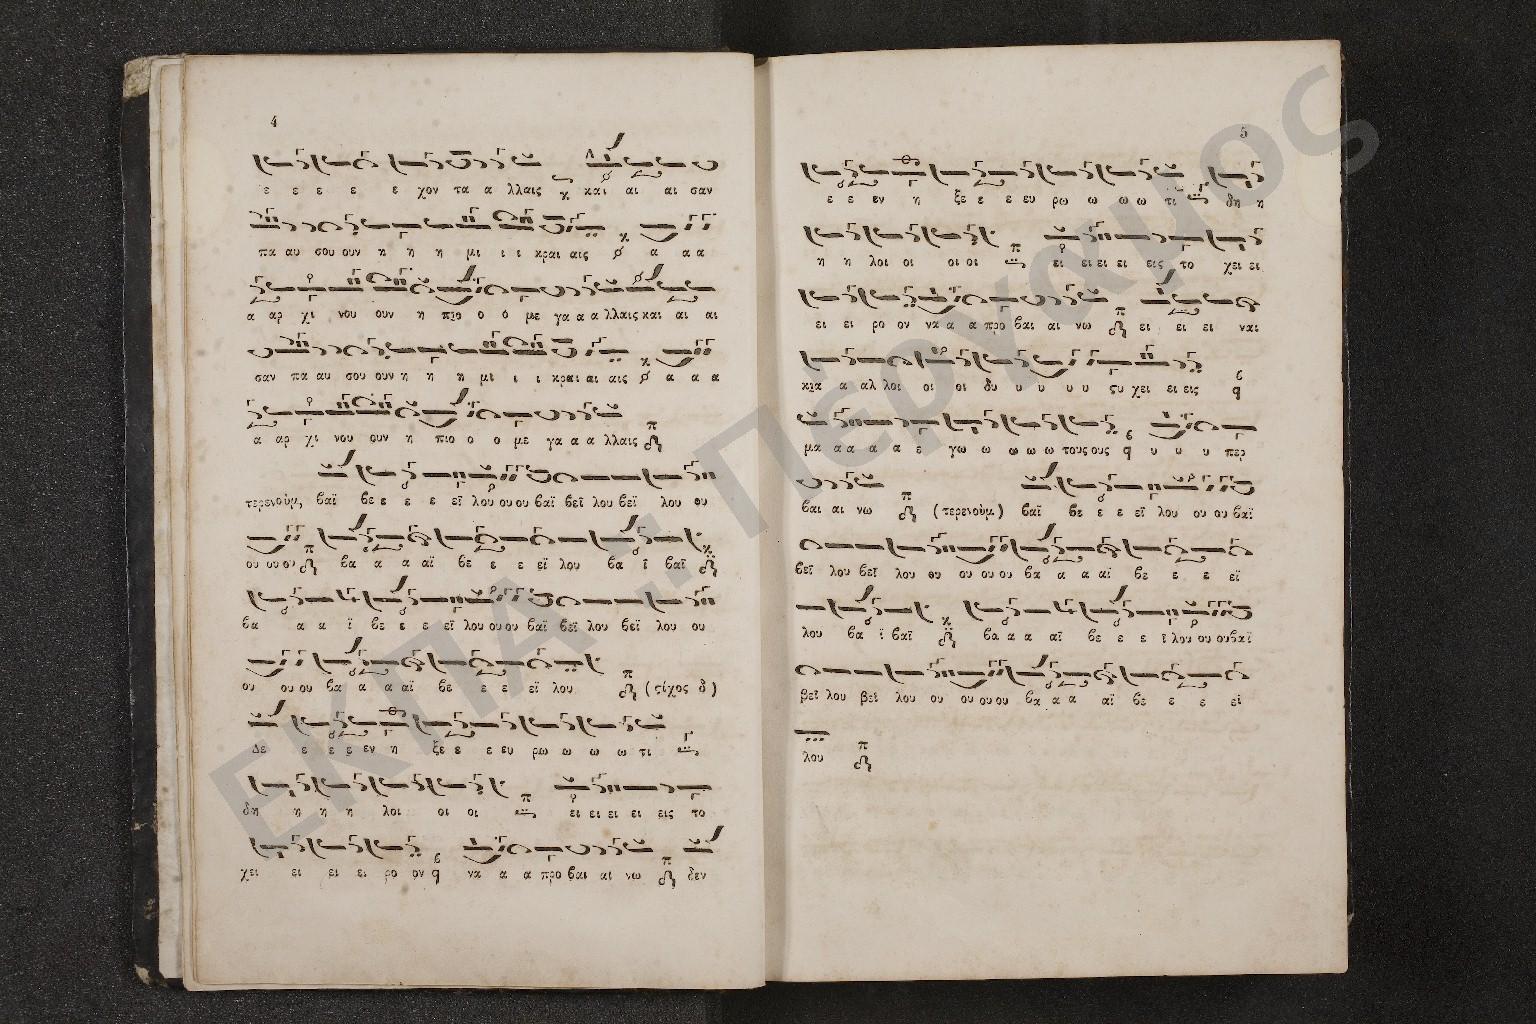 4
ε ε ε ε ε χον τα α λλαις και αι αι σαν
πα αυ σου ουν η η η μι ι ι κραι αις α α α
α αρ χι νου ουν η πιο ο ό με γα α α λλαις και αι αι
σαν πα αυ σου ουν η η η μι ι ι κραι αι αις α α α
α αρ χι νου ουν η πιο ο ο με γα α α λλαις
τερενοὺμ, βαϊ βε ε ε ε εϊ λου ου ου βαϊ βεϊ λου βεϊ λου ου
ου ου ου βα α α αϊ βε ε ε εϊ λου βα ϊ βαϊ
βα α α ϊ βε ε ε εϊ λου ου ου βαϊ βεϊ λου βεϊ λου ου
ου ου ου βα α α αϊ βε ε ε εϊ λου (ςίχος δ)
Δε ε ε ε εν η ξε ε ε ευ ρω ω ω ω τι
δη η η η λοι οι οι ει ει ει ει εις το
χει ει ει ει ρο ον να α α προ βαι αι νω δεν
5
ε ε εν η ξε ε ε ευ ρω ω ω ω τι δη η
η η λοι οι οι οι ει ει ει ει εις το χει ει
ει ει ρο ον να α α προ βαι αι νω ει ει ει ναι
κια α αλ λοι οι οι δυ υ υ υ υ ςυ χει ει εις
μα α α α α ε γω ω ω ω ω τους ους υ υ υ περ
βαι αι νω (τερενοὺμ) βαϊ βε ε ε εϊ λου ου ου βαϊ
βεϊ λου βεϊ λου ου ου ου ου βα α α αϊ βε ε ε εϊ
λου βα ϊ βαϊ βα α α αϊ βε ε ε ϊ λου ου ου βαϊ
βεϊ λου βεϊ λου ου ου ου ου βα α α αϊ βε ε ε εϊ
λου
ΕΚΠΑ :: Πέργαμος